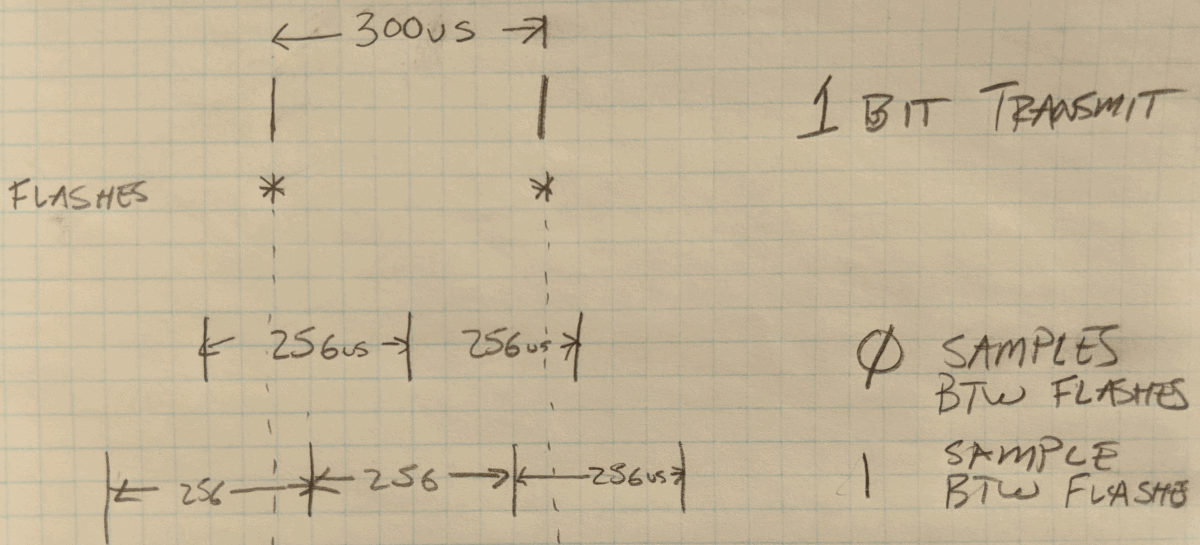 300us
1 BIT TRANSMIT
FLASHES
* *
256us 256us Ø SAMPLES
BTW FLASHES
256 256 256us 1 SAMPLE
BTW FLASHE